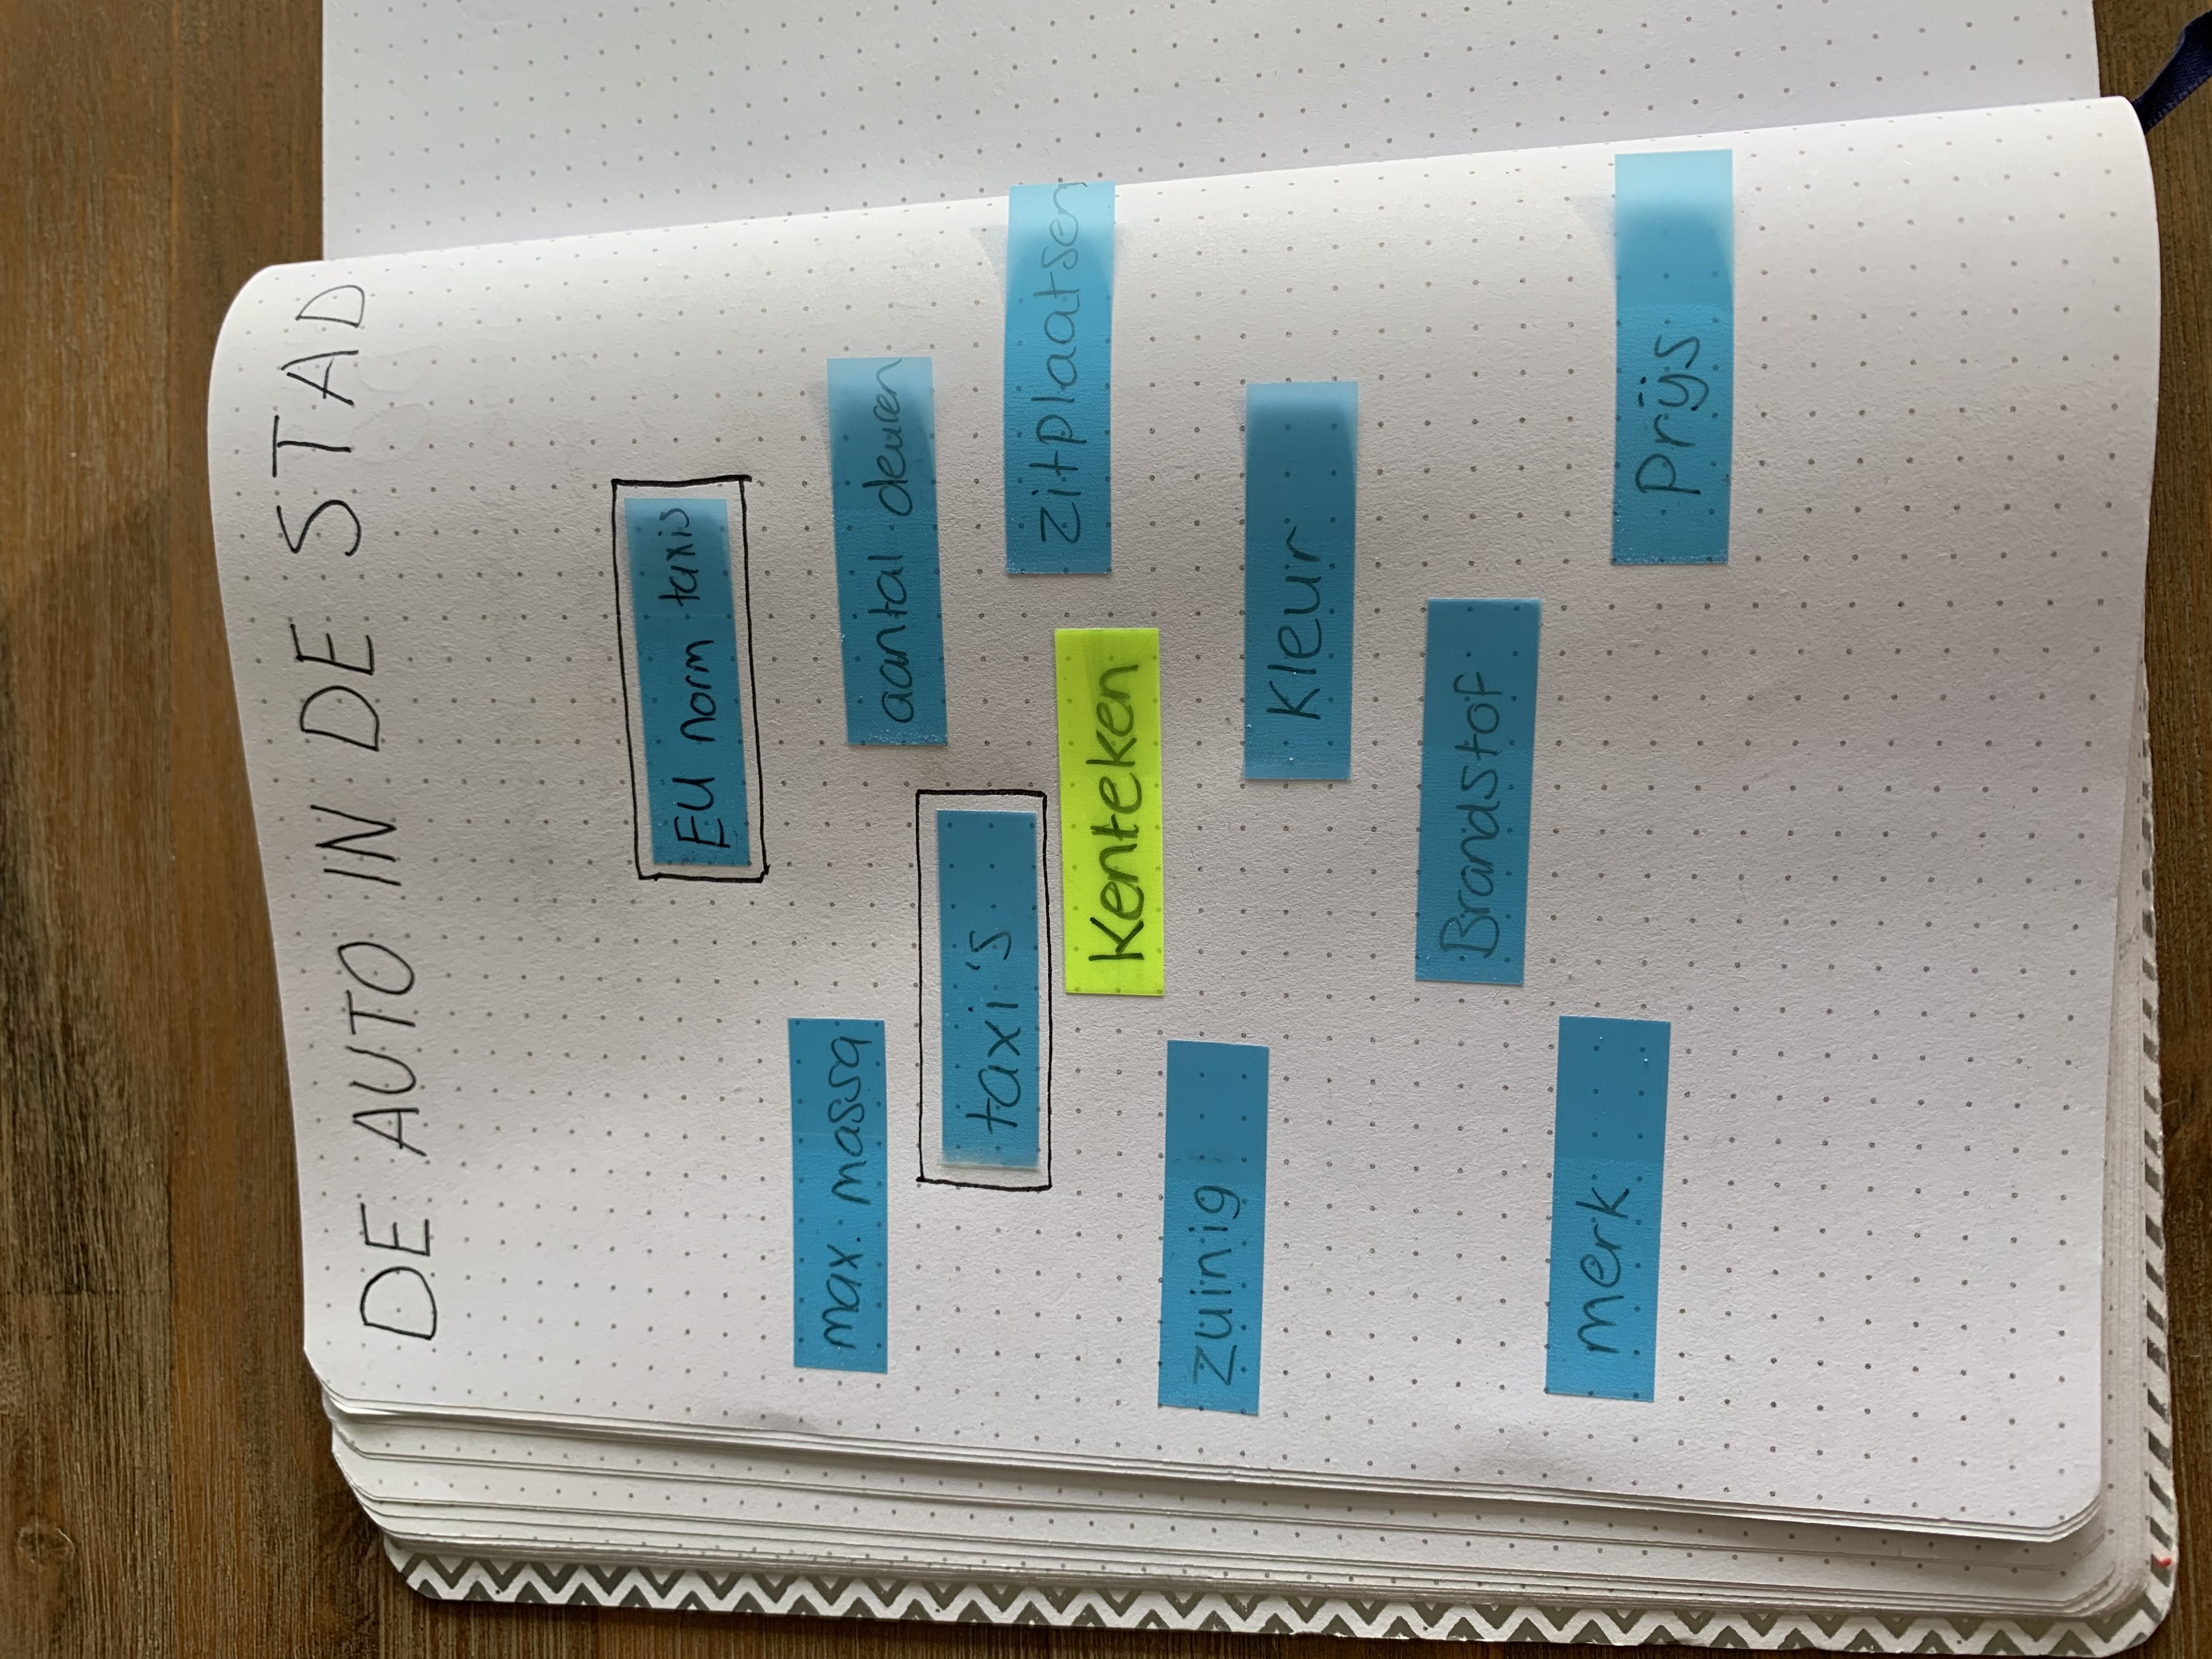 DE AUTO IN DE STAD
EU norm taxis
max. massa
aantal deuren
taxi's
zitplaatsen
Kenteken
zuinig
Kleur
Brandstof
merk
Prijs